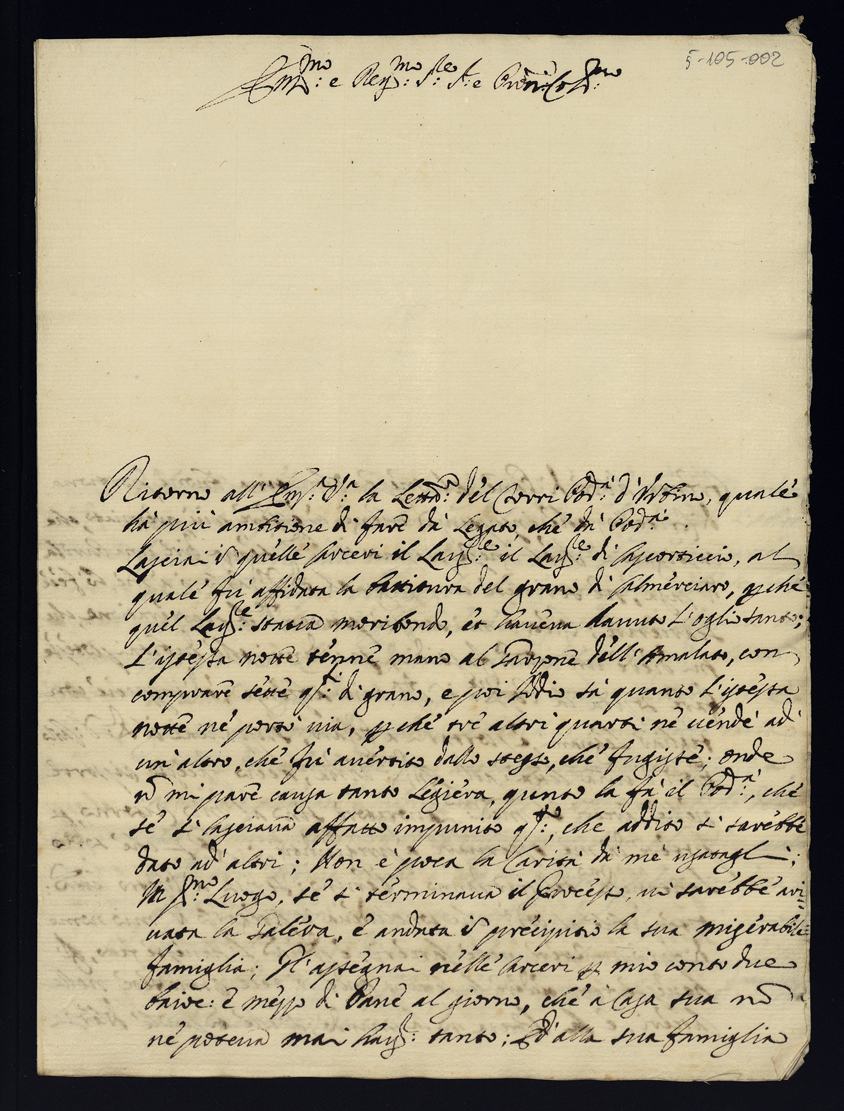 5-105-002
Em:mo e Rey:mo S:re S: e Pron: Col:mo
Ritorno all' Em:a V:a la Lett:a del Corri Pod:a d'Urbino, quale
hà più ambitione di fare dà Legato che dà Pod:a
Lasciai ī quelle carceri il Lau:re il Lau:re di Caporticcio, al
quale fù affidata la battitura del grano di Salmerciaro, p̱chè
quel Lau:re staua moribondo, et haueua hauuto l'oglio santo;
L'istessa notte tenne mano al Garzone dell' Amalato, con
comprare sette q:ti di grano, e poi Iddio sà quanto l'istessa
notte ne portò uia, p̱chè trè altri quarti ne uendè ad
un' altro, che fù auertito dallo stesso, che fugisse; onde
nō mi pare causa tanto legiera, quanto la fà il Pod:a, che
se si lasciaua affatto impunito q:to, che addito si sarebbe
dato ad' altri; Non è poca la Carità dà me usatagli;
In p:mo Luogo, se si terminaua il Processo, ui sarebbe arri=
uata la Galera, e andata ī precipitio la sua miserabile
famiglia; Gl'assegnai nelle carceri p̱ mio conto due
baioc: e mezzo di Pane al giorno, che à Casa sua nō
ne poteua mai hau: tanto; Ed alla sua famiglia